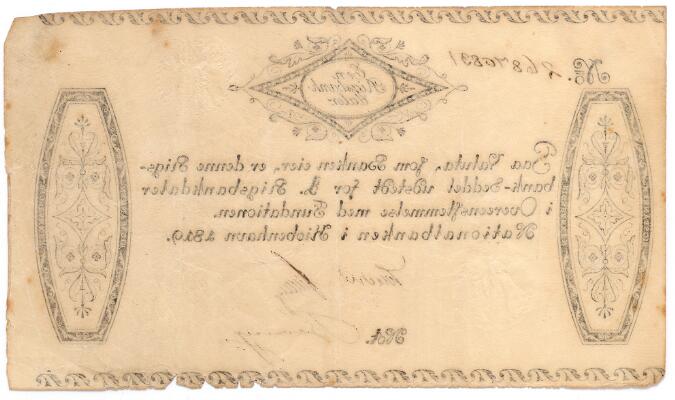 No.
Een
Rigsbank
daler
Paa Valuta, som Banken eier, er denne Rigs-
bank-Seddel udstedt for 1. Rigsbankdaler
i Overeensstemmelse med Fundationen.
Nationalbanken i Kiøbenhavn 1819.